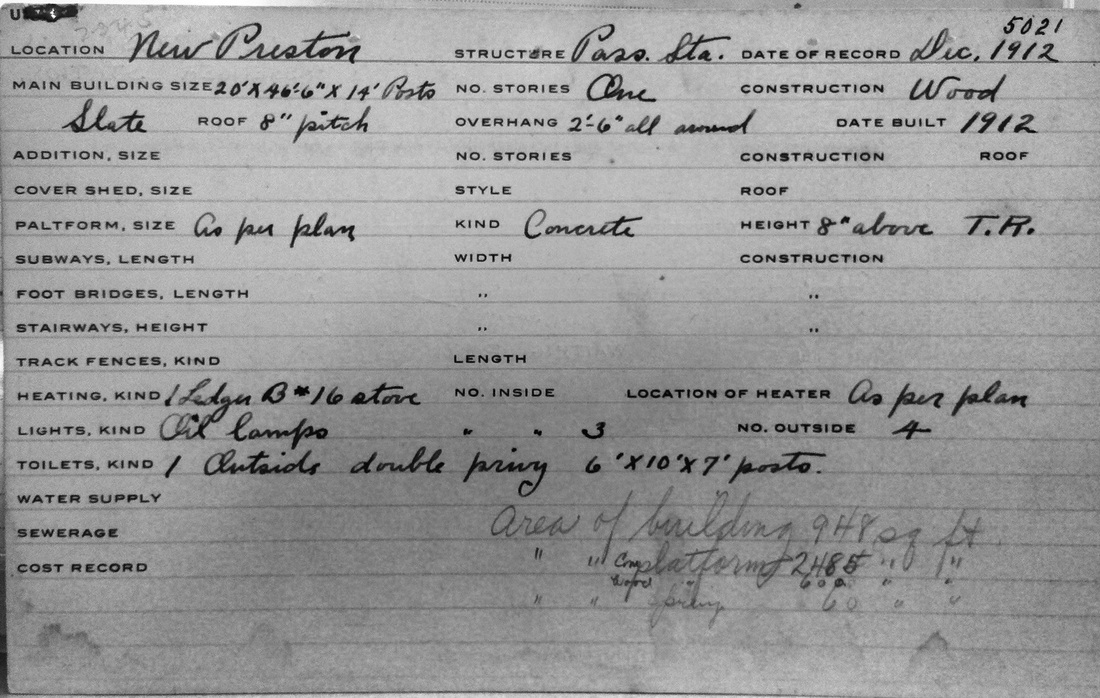 5021
LOCATION New Preston STRUCTURE Pass. Sta. DATE OF RECORD Dec, 1912
MAIN BUILDING SIZE 20'X46'-6"X14' Posts NO. STORIES One CONSTRUCTION Wood
Slate ROOF 8" pitch OVERHANG 2'-6" all around DATE BUILT 1912
ADDITION, SIZE NO. STORIES CONSTRUCTION ROOF
COVER SHED, SIZE STYLE ROOF
PALTFORM, SIZE As per plan KIND Concrete HEIGHT 8" above T.R.
SUBWAYS, LENGTH WIDTH CONSTRUCTION
FOOT BRIDGES, LENGTH " "
STAIRWAYS, HEIGHT " "
TRACK FENCES, KIND LENGTH
HEATING, KIND 1 Ledger B #16 stove NO. INSIDE LOCATION OF HEATER As per plan
LIGHTS, KIND Oil lamps " " 3 NO. OUTSIDE 4
TOILETS, KIND 1 Outside double privy 6'X10'X7' posts.
WATER SUPPLY
SEWERAGE Area of building 948 sq ft
COST RECORD " " Con platform 2485 " "
Wood " 600 " "
" " privy 60 " "